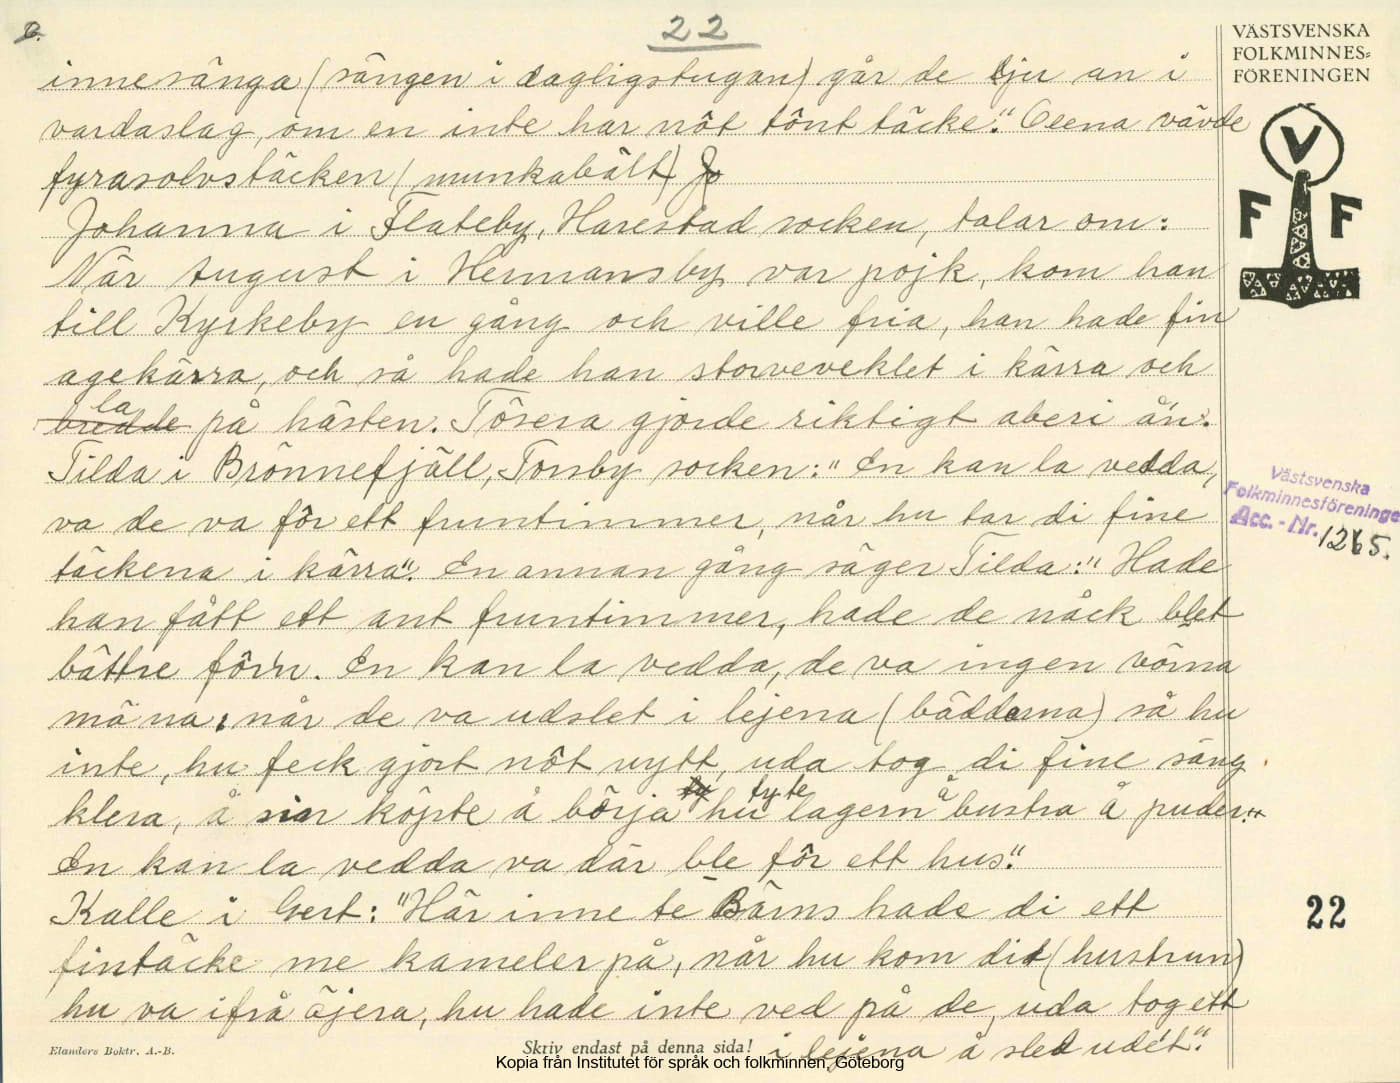 22
VÄSTSVENSKA
FOLKMINNES=
FÖRENINGEN
V
F F
innesänga (sängen i dagligstugan) går de lju an i
vardaslag, om en inte har nôt tônt täcke." Oeena vävde
fyrasolvstäcken (munkabält) Jo
Johanna i Flateby, Harestad socken, talar om:
När August i Hermansby var pojk, kom han
till Kyrkeby en gång och ville fria, han hade fin
agekärra, och så hade han storveveklet i kärra och
bredde la på hästen. Tôsera gjorde riktigt aberi å'n.
Tilda i Brönnefjäll, Torsby socken: "En kan la vedda,
va de va fôr ett fruntimmer, når hu tar di fine
täckena i kärra". En annan gång säger Tilda: "Hade
han fått ett ant fruntimmer, hade de nåck blet
bättre fôr'n. En kan la vedda, de va ingen vörna
mä na, når de va udslet i lejena (bäddarna) så hu
inte, hu feck gjort nôt nytt, uda tog di fine säng
klera, å sin köpte å börja hu tyte lagern å bustra å puder.
En kan la vedda va där ble fôr ett hus."
Kalle i Gert: "Här inne te Bärns hade di ett
fintäcke me kameler på, når hu kom dit (hustrun)
hu va ifrå öjera, hu hade inte ved på de, uda tog ett
i lejena å sled udét."
Västsvenska
Folkminnesföreningen
Acc. - Nr. 1265.
22
Elanders Boktr. A.-B.
Skriv endast på denna sida!
Kopia från Institutet för språk och folkminnen, Göteborg